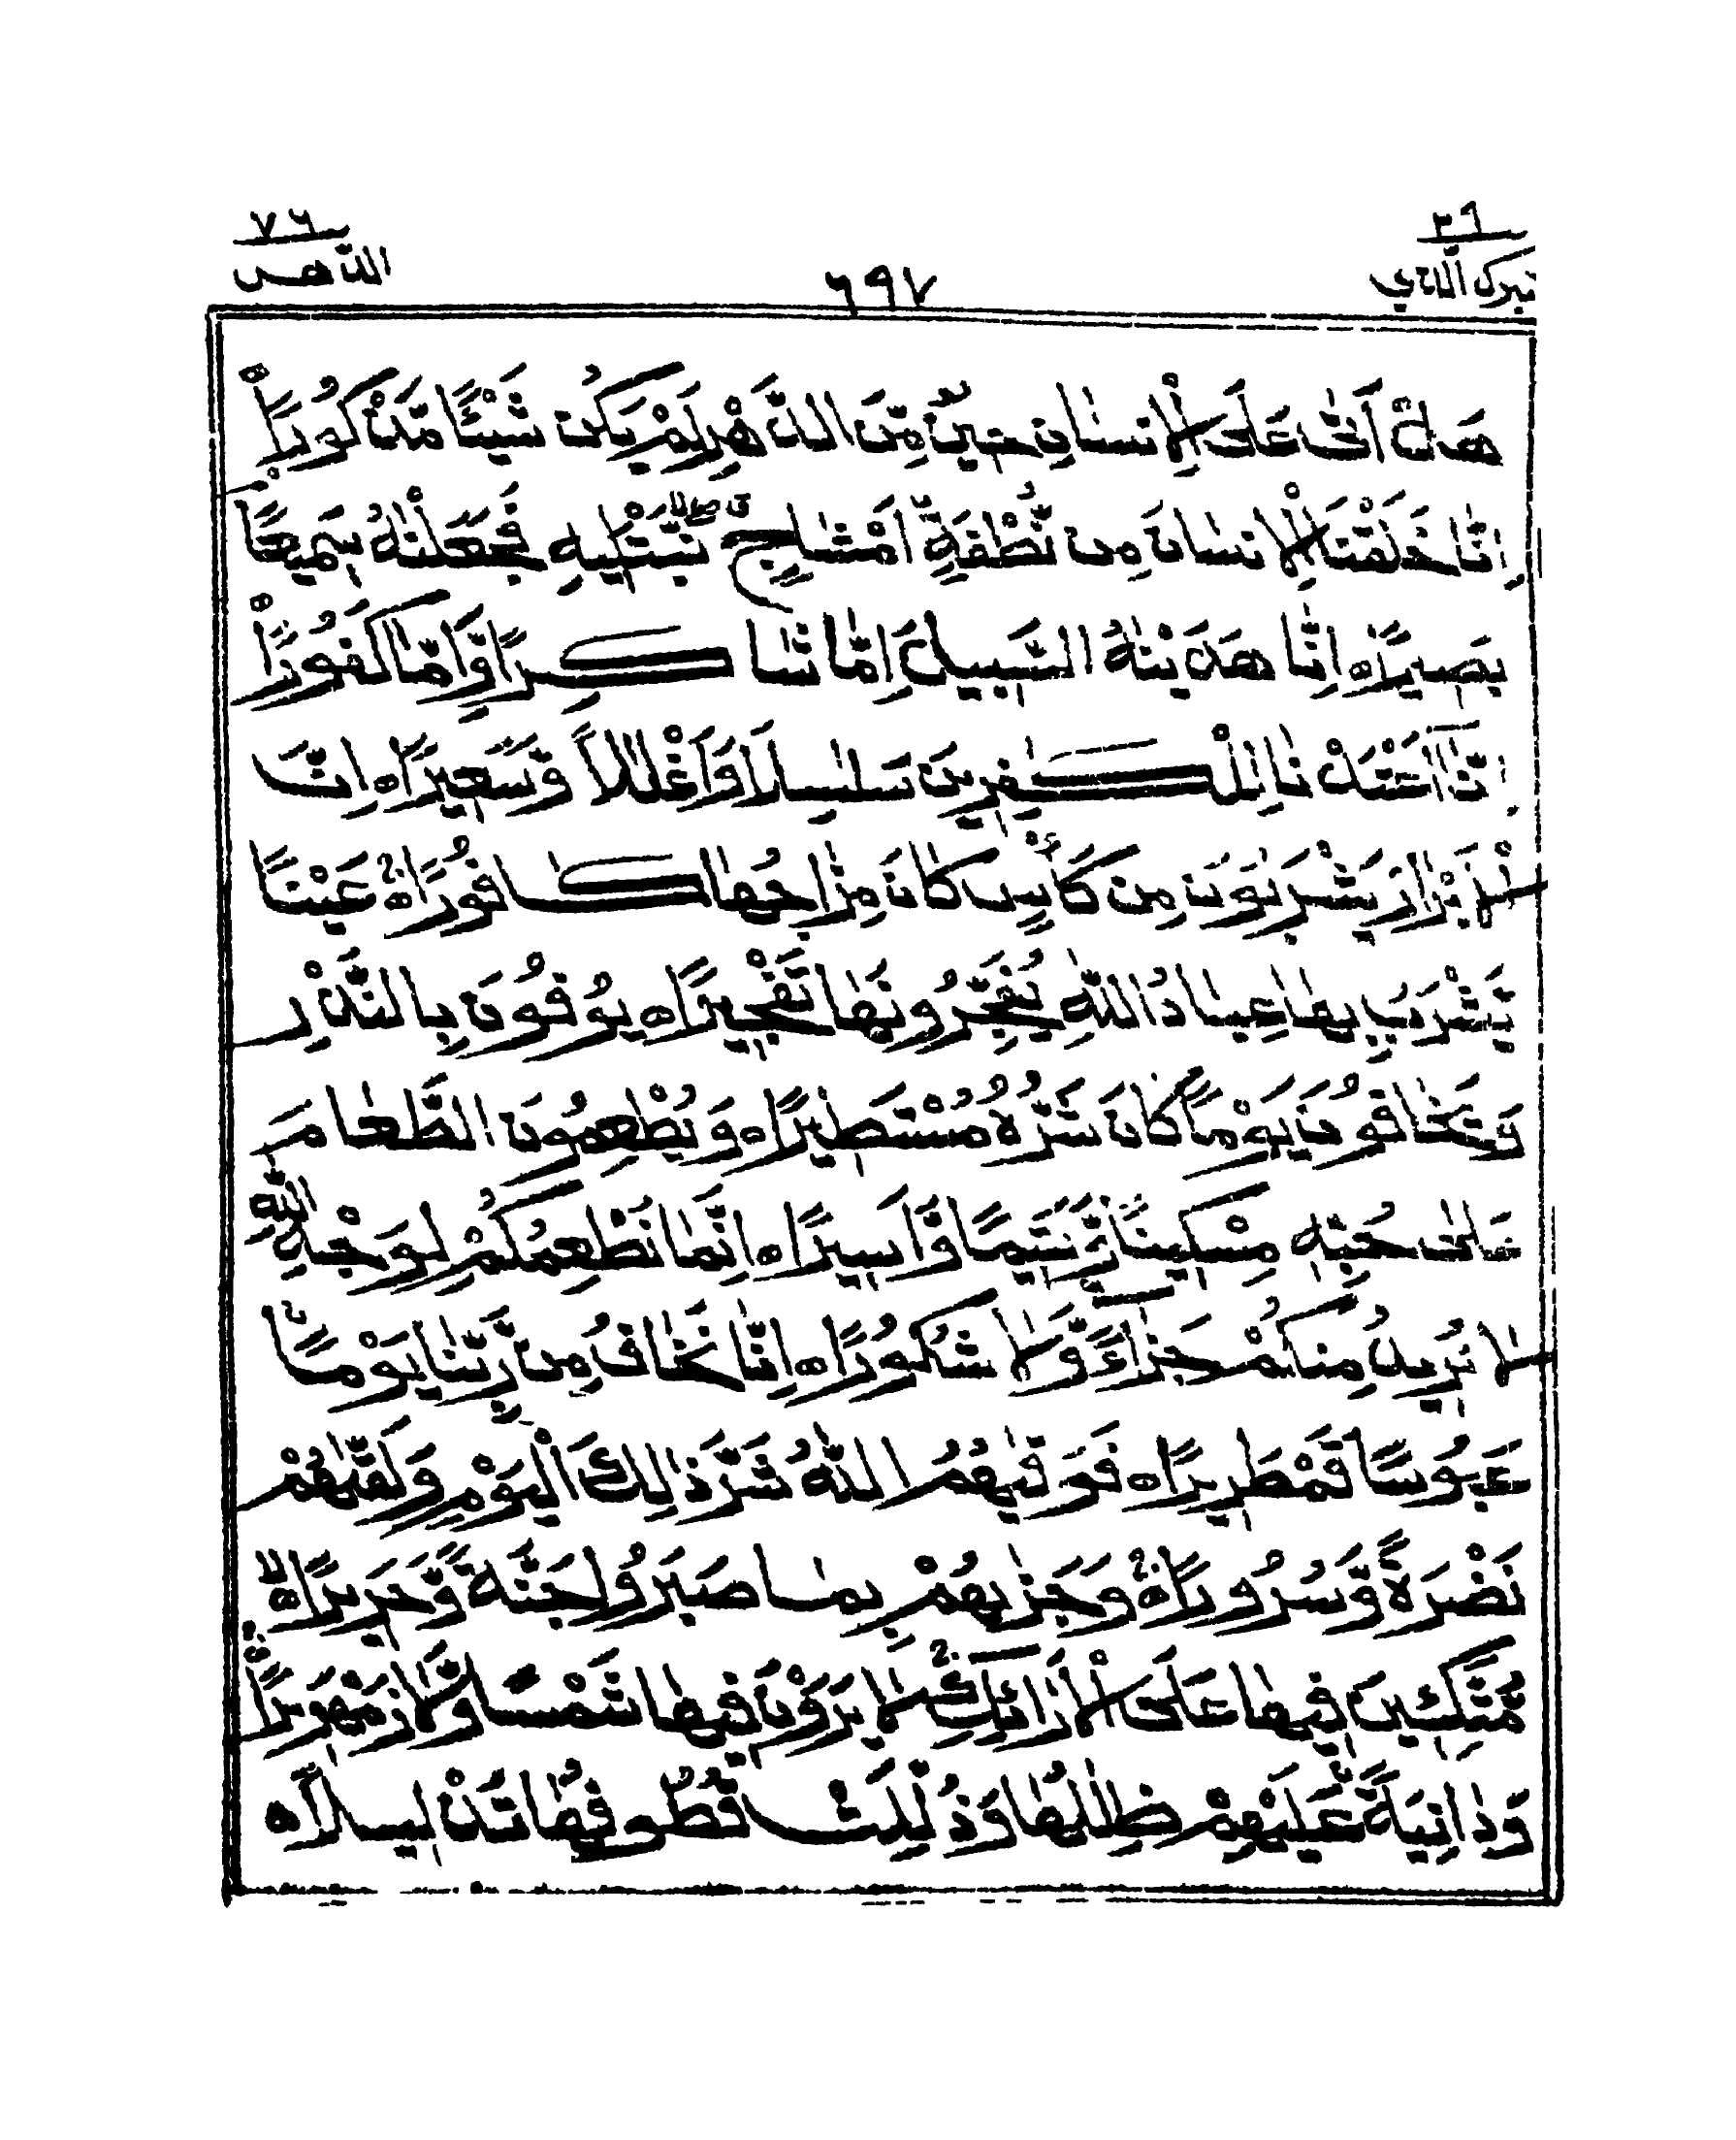 تبرك الذي ٢٩
٦٩٧
الدهر ٧٦
هَلْ اَتٰى عَلَى الْاِنْسَانِ حِيْنٌ مِّنَ الدَّهْرِ لَمْ يَكُنْ شَيْـًٔا مَّذْكُوْرًا
اِنَّا خَلَقْنَا الْاِنْسَانَ مِنْ نُّطْفَةٍ اَمْشَاجٍ نَّبْتَلِيْهِ فَجَعَلْنٰهُ سَمِيْعًا
بَصِيْرًا ه اِنَّا هَدَيْنٰهُ السَّبِيْلَ اِمَّا شَاكِرًا وَّاِمَّا كَفُوْرًا
اِنَّآ اَعْتَدْنَا لِلْكٰفِرِيْنَ سَلٰسِلَا۟ وَاَغْلٰلًا وَّسَعِيْرًا ه اِنَّ
الْاَبْرَارَ يَشْرَبُوْنَ مِنْ كَاْسٍ كَانَ مِزَاجُهَا كَافُوْرًا ه عَيْنًا
يَّشْرَبُ بِهَا عِبَادُ اللّٰهِ يُفَجِّرُوْنَهَا تَفْجِيْرًا ه يُوْفُوْنَ بِالنَّذْرِ
وَيَخَافُوْنَ يَوْمًا كَانَ شَرُّهٗ مُسْتَطِيْرًا ه وَيُطْعِمُوْنَ الطَّعَامَ
عَلٰى حُبِّهٖ مِسْكِيْنًا وَّيَتِيْمًا وَّاَسِيْرًا ه اِنَّمَا نُطْعِمُكُمْ لِوَجْهِ اللّٰهِ
لَا نُرِيْدُ مِنْكُمْ جَزَآءً وَّلَا شُكُوْرًا ه اِنَّا نَخَافُ مِنْ رَّبِّنَا يَوْمًا
عَبُوْسًا قَمْطَرِيْرًا ه فَوَقٰىهُمُ اللّٰهُ شَرَّ ذٰلِكَ الْيَوْمِ وَلَقّٰىهُمْ
نَضْرَةً وَّسُرُوْرًا ه وَجَزٰىهُمْ بِمَا صَبَرُوْا جَنَّةً وَّحَرِيْرًا ه
مُّتَّكِـِٕيْنَ فِيْهَا عَلَى الْاَرَآئِكِ لَا يَرَوْنَ فِيْهَا شَمْسًا وَّلَا زَمْهَرِيْرًا
وَدَانِيَةً عَلَيْهِمْ ظِلٰلُهَا وَذُلِّلَتْ قُطُوْفُهَا تَذْلِيْلًا ه